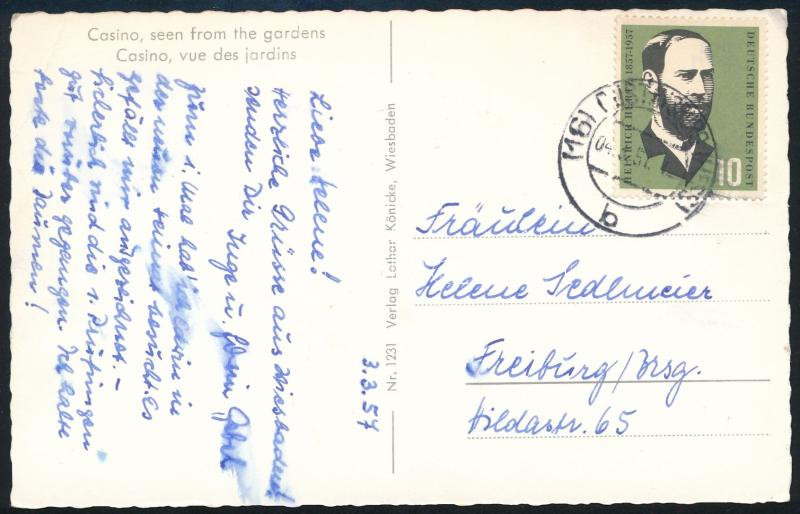 Casino, seen from the gardens
Casino, vue des jardins
Liebe Helene!
Herrliche Grüsse aus Wiesbaden
senden Dir Inge u.
3.3.57
Zum 1. Mal hab' ich in
der neuen Heimat besucht. Es
gefällt mir ausgezeichnet. –
sind die 1. Prüfungen
gut vorüber gegangen. Ich halte
feste die Daumen!
Nr. 1231 Verlag Lothar Könicke, Wiesbaden
HEINRICH HERTZ 1857-1957
DEUTSCHE BUNDESPOST
10
(16)
b
Fräulein
Helene Sedlmeier
Freiburg/Brsg.
Hildastr. 65